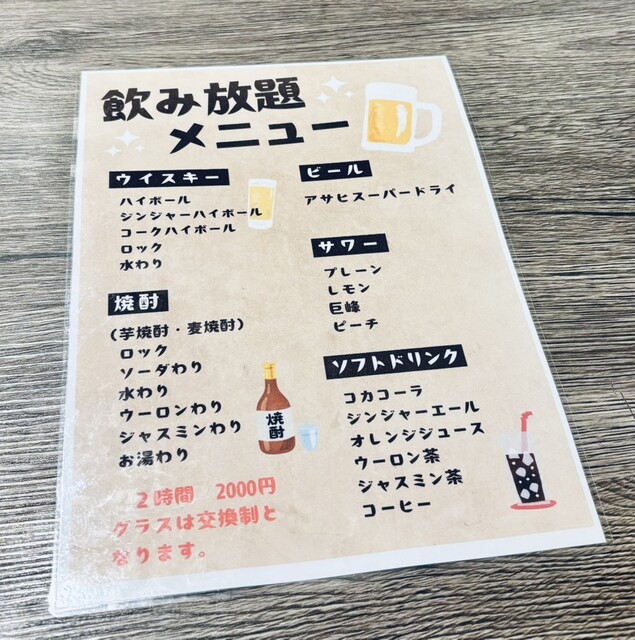 飲み放題
メニュー
ウイスキー
ハイボール
ジンジャーハイボール
コークハイボール
ロック
水わり
焼酎
(芋焼酎・麦焼酎)
ロック
ソーダわり
水わり
ウーロンわり
ジャスミンわり
お湯わり
焼酎
2時間 2000円
グラスは交換制と
なります。
ビール
アサヒスーパードライ
サワー
プレーン
レモン
巨峰
ピーチ
ソフトドリンク
コカコーラ
ジンジャーエール
オレンジジュース
ウーロン茶
ジャスミン茶
コーヒー